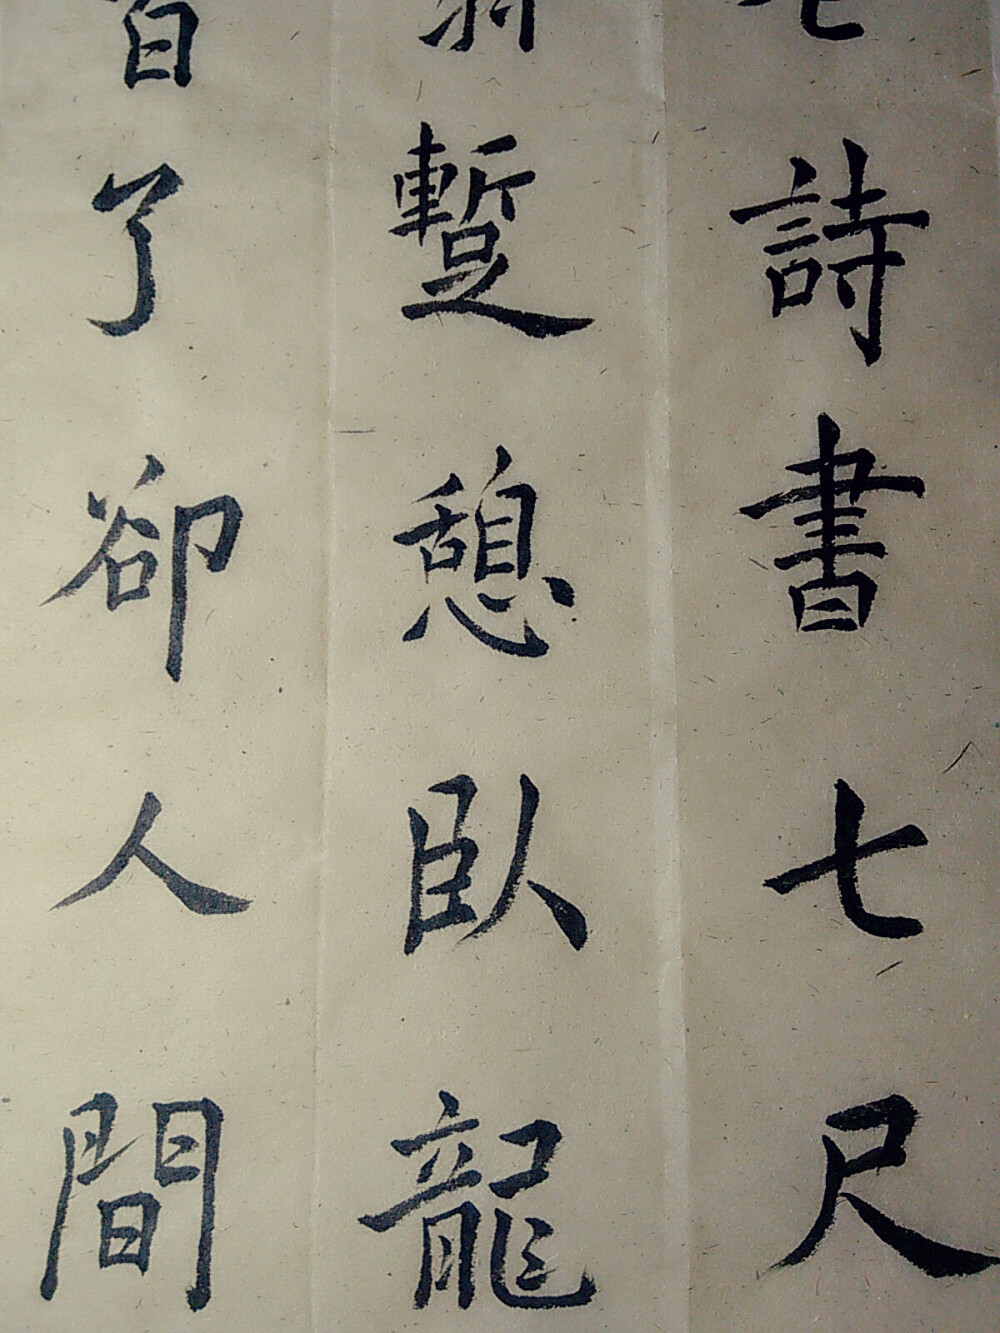 詩書七尺
蹔憩臥龍
了卻人間